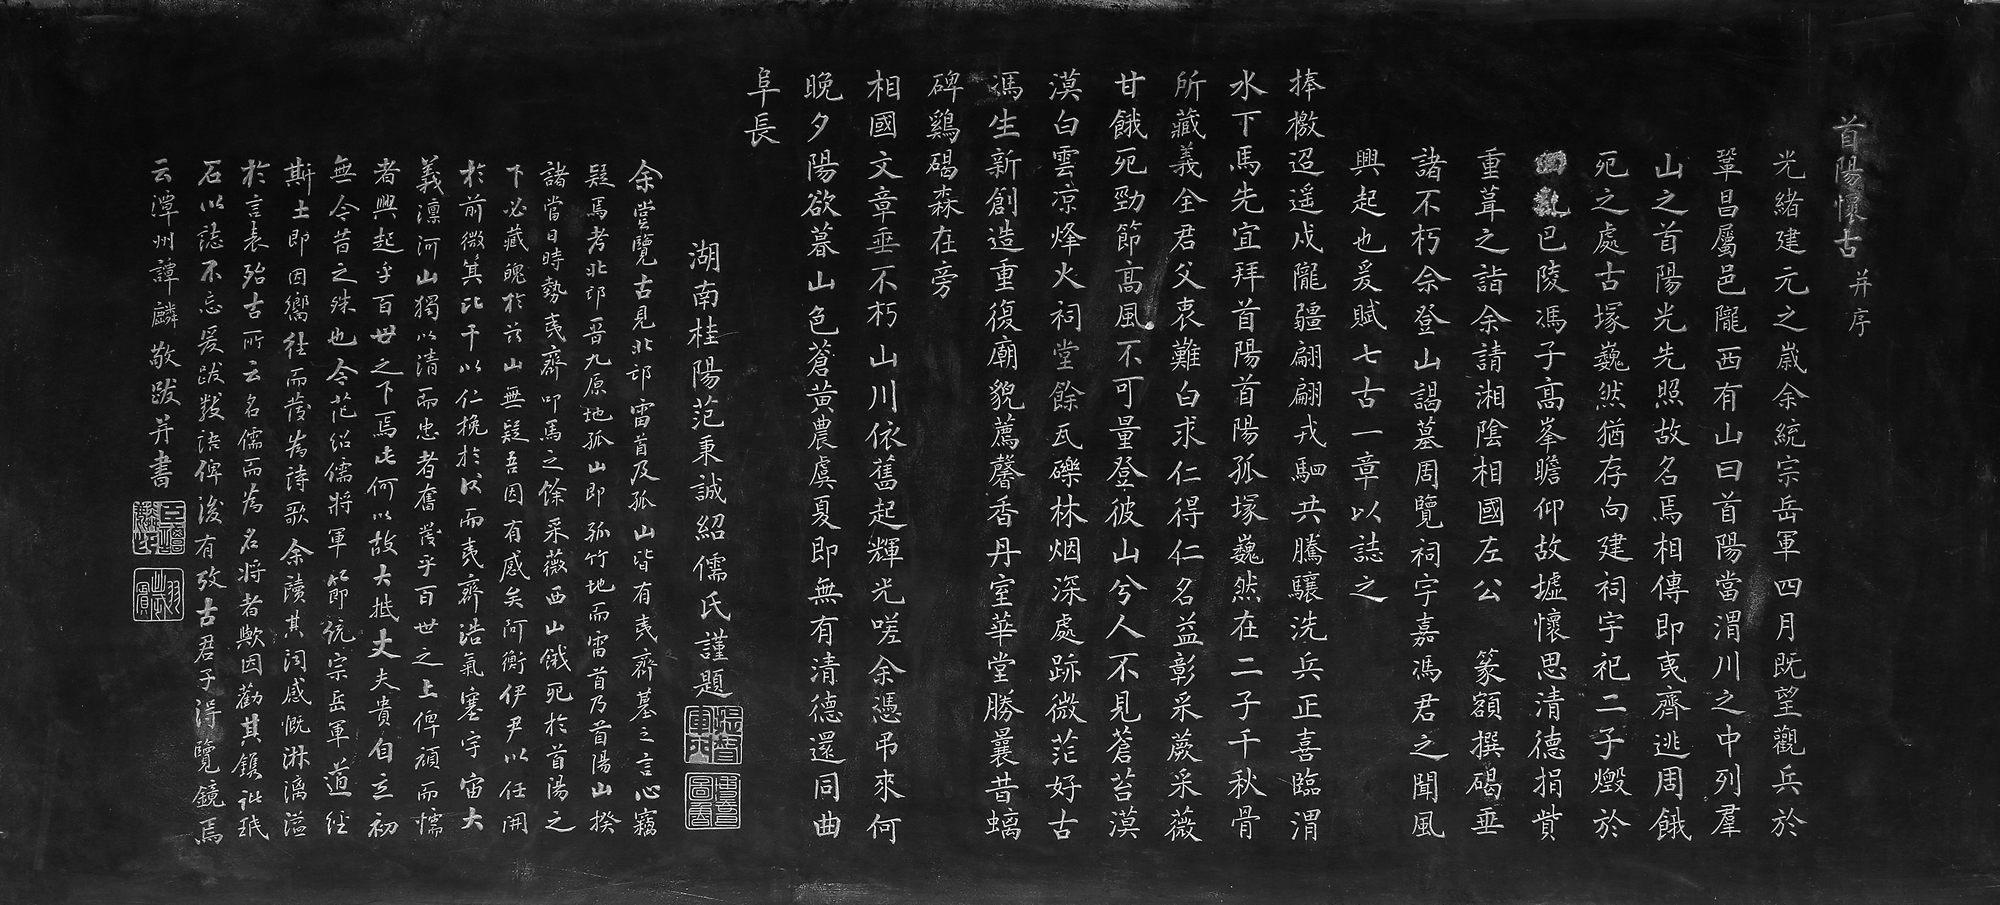 首陽懷古并序
光緒建元之歲余統宗岳軍四月既望觀兵於
鞏昌屬邑隴西有山曰首陽當渭川之中列羣
山之首陽光先照故名焉相傳即夷齊逃周餓
死之處古塚巍然猶存向建祠宇祀二子燬於
回亂巴陵馮子高峯瞻仰故墟懷思清德捐貲
重葺之詣余請湘陰相國左公 篆額撰碣垂
諸不朽余登山謁墓周覽祠宇嘉馮君之聞風
興起也爰賦七古一章以誌之
捧檄迢遥戍隴疆翩翩戎駟共騰驤洗兵正喜臨渭
水下馬先宜拜首陽首陽孤塚巍然在二子千秋骨
所藏義全君父衷難白求仁得仁名益彰采蕨采薇
甘餓死勁節高風不可量登彼山兮人不見蒼苔漠
漠白雲凉烽火祠堂餘瓦礫林烟深處跡微茫好古
馮生新創造重復廟貌薦馨香丹室華堂勝曩昔螭
碑鷄碣森在旁
相國文章垂不朽山川依舊起輝光嗟余憑弔來何
晚夕陽欲暮山色蒼黃農虞夏即無有清德還同曲
阜長
湖南桂陽范秉誠紹儒氏謹題
余嘗覽古見北邙雷首及孤山皆有夷齊墓之言心竊
疑焉考北邙晉九原地孤山即孤竹地而雷首乃首陽山揆
諸當日時勢夷齊叩馬之餘采薇西山餓死於首陽之
下必藏魄於茲山無疑吾因有感矣阿衡伊尹以任開
於前微箕比干以仁挽於後而夷齊浩氣塞宇宙大
義凜河山獨以清而忠者奮發乎百世之上俾頑而懦
者興起乎百世之下焉此何以故大抵丈夫貴自立初
無今昔之殊也今范紹儒將軍節統宗岳軍道經
斯土即因嚮往而發為詩歌余讀其詞感慨淋漓溢
於言表殆古所云名儒而為名將者歟因勸其鐫祉珉
石以誌不忘爰跋數語俾後有攷古君子得覽鏡焉
云潭州譚麟敬跋并書